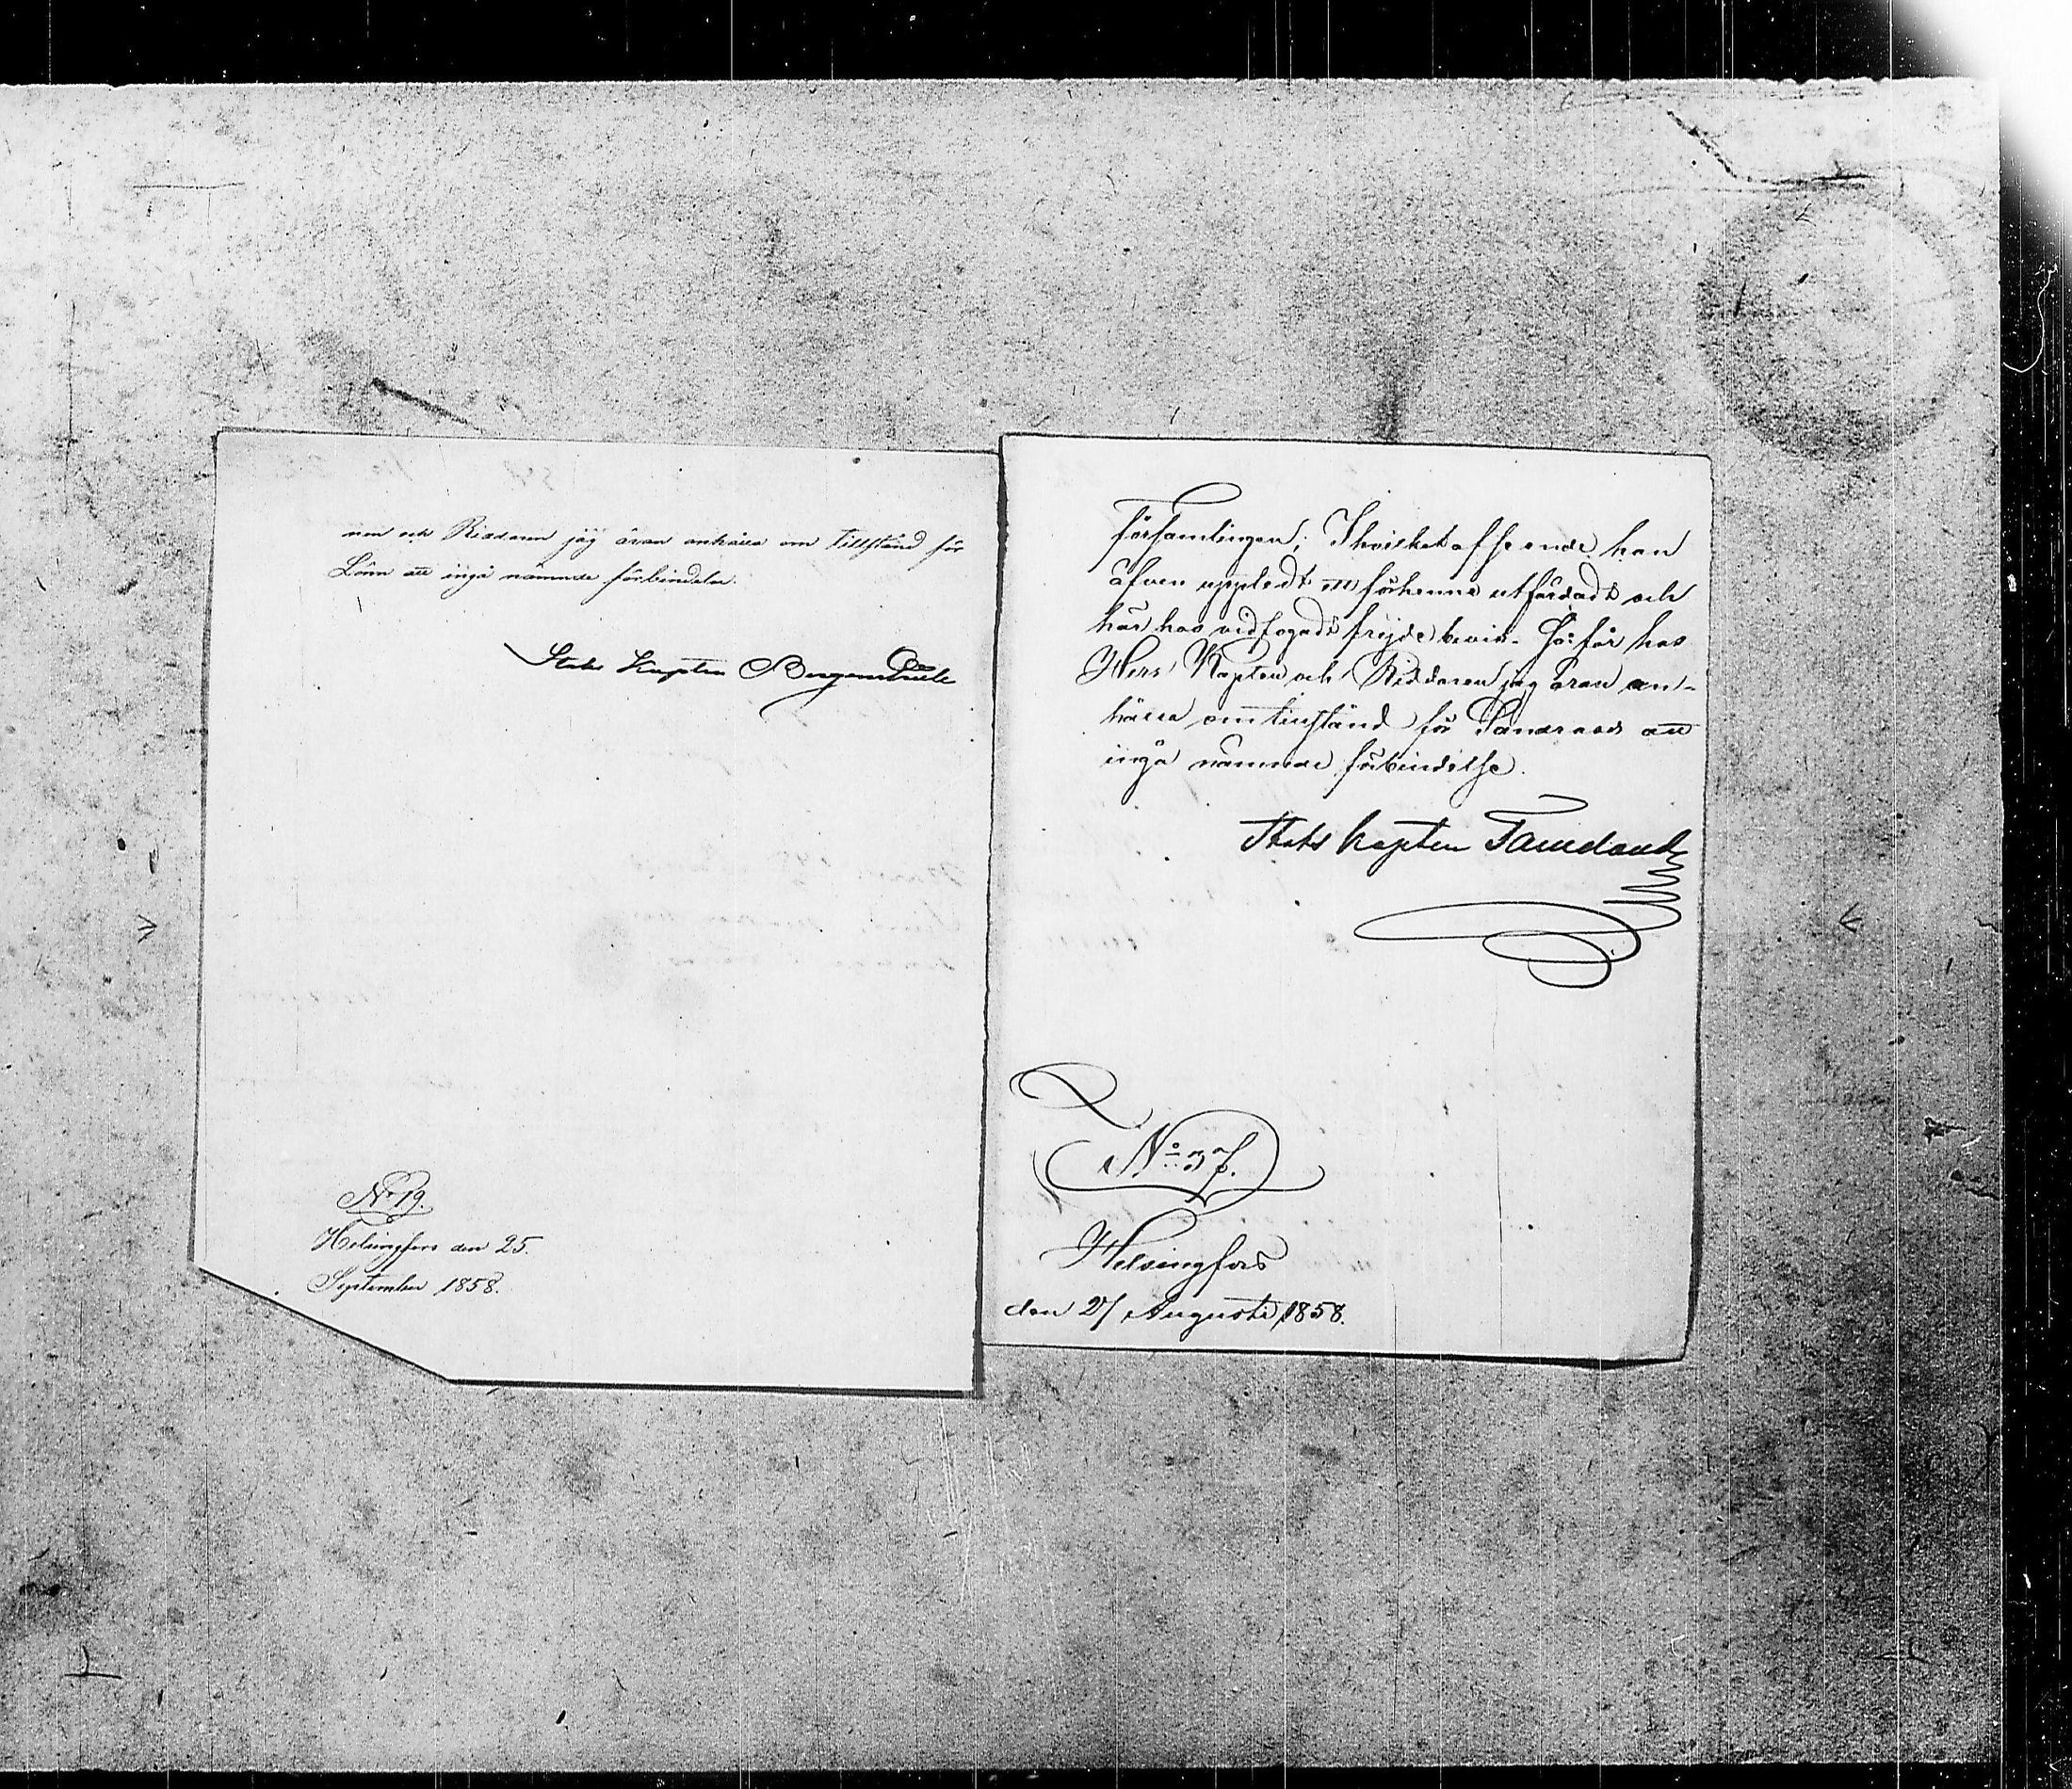 nen och Riddaren jag äran anhålla om tillstånd för
Lönn att ingå nämnde förbindelse.
Stabs Kapten Bergenstråle
No 19.
Helsingfors den 25.
September 1858.
församlingen; I hvilket afseende han
äfven uppledt ett för henne utfärdadt och
här hos vidfogadt frejdebevis. Hos
Herr Kapten och Riddaren jag äran an-
hålla om tillstånd för att
ingå nämnde förbindelse.
Stabs Kapten
No 37.
Helsingfors
den 27 Augusti 1858.